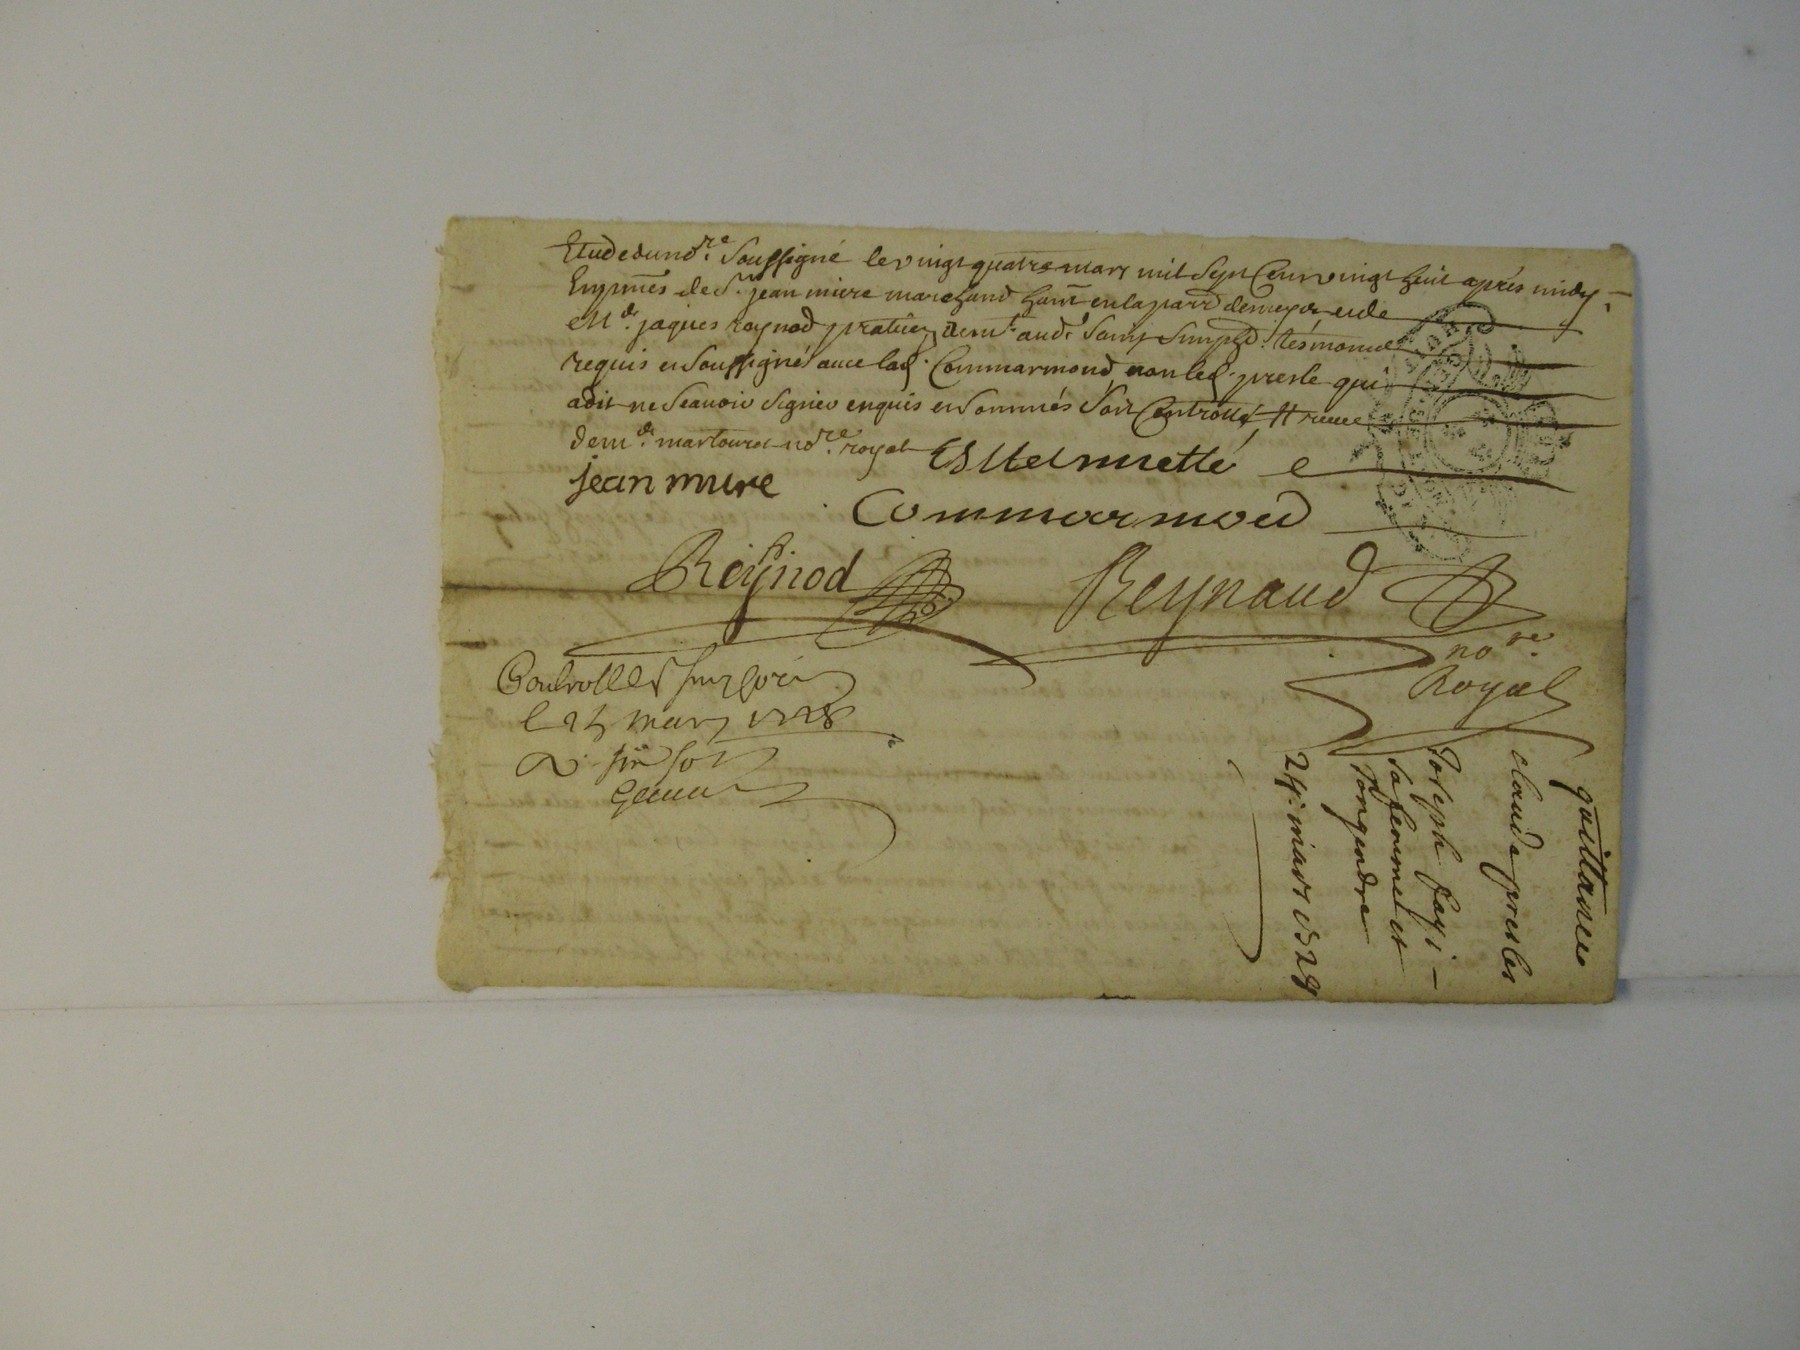 Etude du no.re soussigné le vingt quatre mars mil sept Cent vingt huit après midy
En pnces de Sr. jean mure marchand hant en la parr de et de
Me. jaques reynod praticien demt. aud. Saint Simphd. tesmoins
requis et soussignés avec lad. Commarmond non led. presle qui
a dit ne scavoir signer enquis et sommés soit Controllé
de me. martouret no.re royal Esttiennette
jean mure
Commarmond
Reynod Reynaud
no.re
Royal
Controllé
le 24 mars 1728
quittance
claude presles
Joseph fayi
sa femme et
son gendre
24. mars 1728